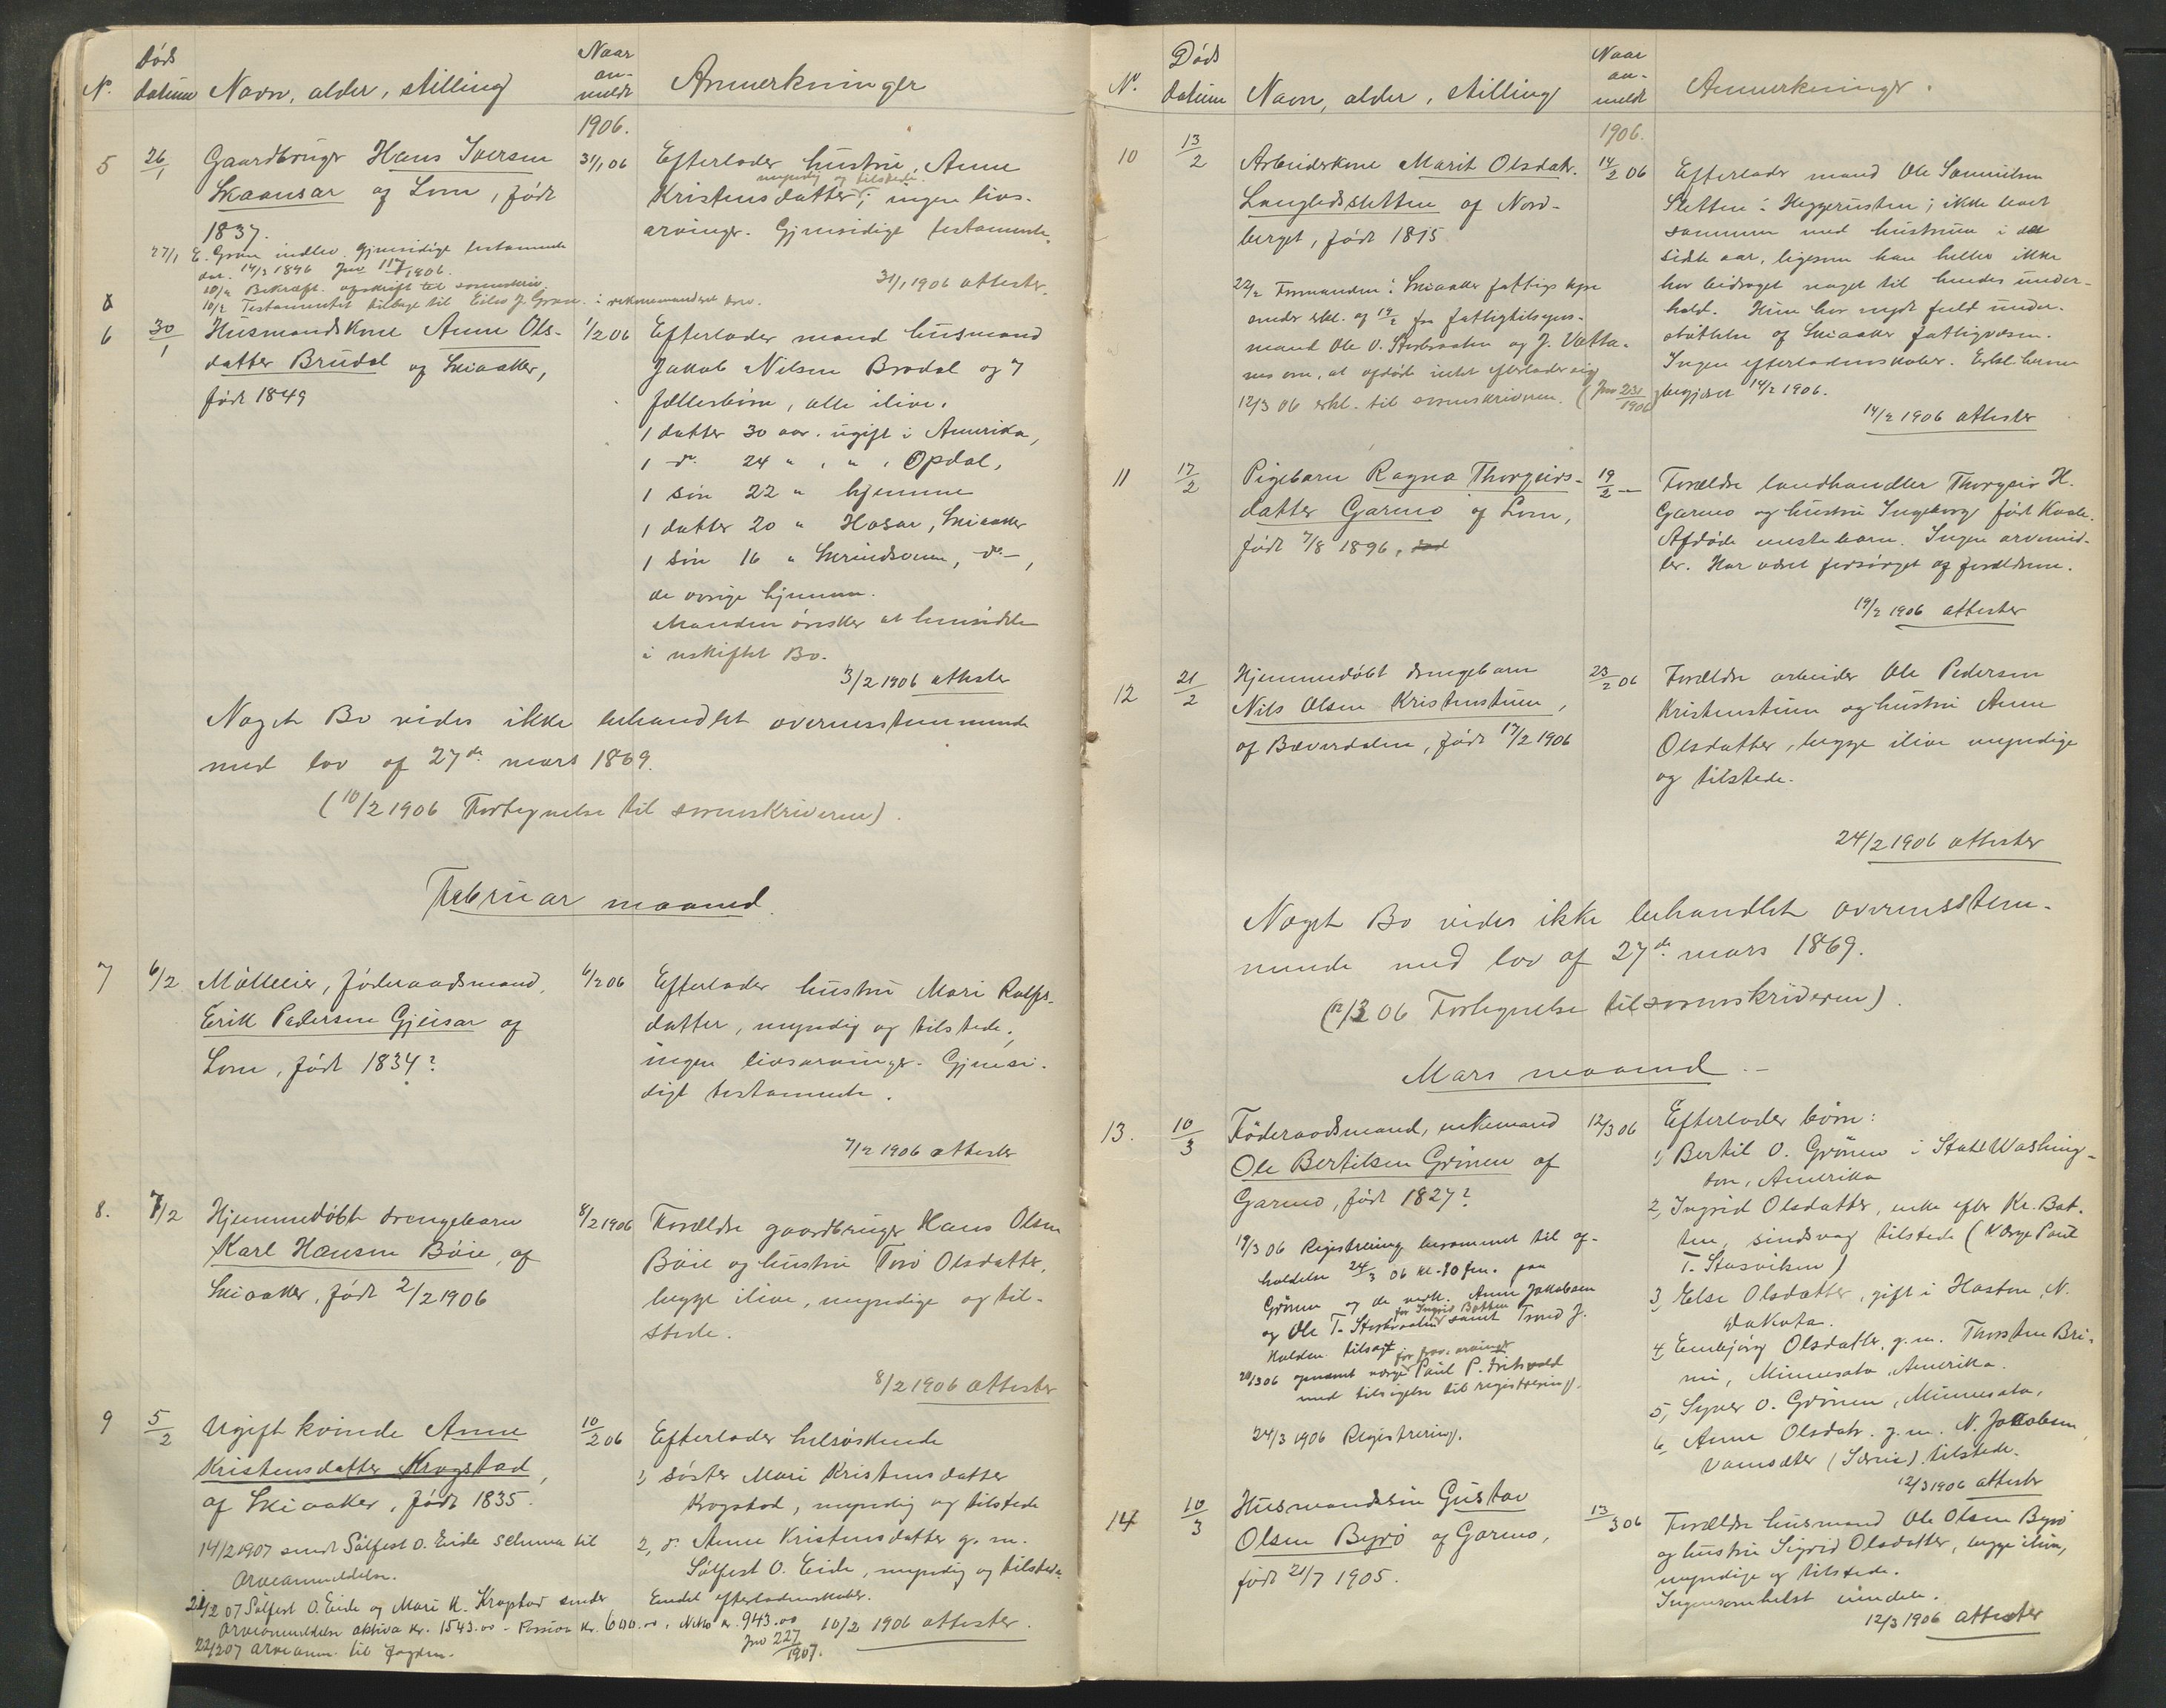 No.
Døds datum
Navn, alder, stilling
Naar an-meldt
Anmerkninger
1906.
5
26/1
Gaardbruger Hans Iversen
Skaansar af Lom, født
1837.
27/1 E. Gram indlev. gjensidige testamente
dat. 14/3 1896 Jno 117/1906.
10/2 Bekræft. afskrift til sorenskriv.
10/2 Testamentet tilbage til Eilev J. Gram i rekommanderet brev.
31/1 06
Efterlader hustru Anne
myndig og tilstede.
Kristensdatter; ingen livs-
arvinger. Gjensidige testamente.
31/1 1906 attester.
6
30/1
Husmandskone Anne Ols-
datter Brudal af Skiaaker,
født 1849
1/2 06
Efterlader mand husmand
Jakob Nilsen Brudal og 7
fællesbørn, alle ilive.
1 datter 30 aar ugift i Amerika,
1 do. 24 " , " , Opdal,
1 søn 22 " hjemme
1 datter 20 " Hosar, Skiaaker
1 søn 16 " Skrindsrum, do-,
de øvrige hjemme.
Manden ønsker at hensidde
i uskiftet Bo.
3/2 1906 attester
Noget Bo vides ikke behandlet overensstemmende
med lov af 27de mars 1869.
(10/2 1906 Fortegnelse til sorenskriveren).
Februar maaned.
7
6/2
Mølleeier, føderaadsmand,
Erik Pedersen Gjeisar af
Lom, født 1834?
6/2 06
Efterlader hustru Mari Rolfs-
datter, myndig og tilstede;
ingen livsarvinger. Gjensi-
digt testamente.
7/2 1906 attester
8.
7/2
Hjemmedøbt drengebarn
Karl Hansen Bøie, af
Skiaaker, født 2/2 1906
8/2 1906
Forældre gaardbruger Hans Olsen
Bøie og hustru Toro Olsdatter,
begge ilive, myndige og til-
stede.
8/2 1906 attester
9
5/2
Ugift kvinde Anne
Kristensdatter Krogstad,
af Skiaaker, født 1835.
14/2 1907 sendt Sølfest O. Eide schema til
Arveanmeldelse.
21/2 07 Sølfest O. Eide og Mari K. Krogstad sender
Arveanmeldelse aktiva kr. 1543.00 - Passiva kr. 600.00, Netto kr. 943.00
22/2 07 Arveanm. til fogden.
Jno 227/1907.
10/2 06
Efterlader helsøskende
1, søster Mari Kristensdatter
Krogstad, myndig og tilstede
2, do. Anne Kristensdatter g. m.
Sølfest O. Eide, myndig og tilstede.
Endel efterladenskaber.
10/2 1906 attester.
No.
Døds datum
Navn, alder, stilling
Naar an-meldt
Anmerkninger.
1906.
10
13/2
Arbeiderkone Marit Olsdatr.
Langledsletten af Nord-
berget, født 1815
22/2 Formanden i Skiaaker fattigs. kpse
sender erkl. af 19/2 fra fattigtilsyns-
mand Ole O. Storbraaten og J. Vatta-
nes om, at afdøde intet efterlader sig
12/3 06 erkl. til sorenskriveren. (Jno 231/1906)
14/2 06
Efterlader mand Ole Samuelsen
Sletten i Heggerusten; ikke levet
sammen med hustruen i det
sidste aar, ligesom han heller ikke
har bidraget noget til hendes under-
hold. Hun har nydt fuld under-
støttelse af Skiaaker fattigvæsen.
Ingen efterladenskaber. Erkl. herom
begjæret 14/2 1906.
14/2 1906 attester
11
17/2
Pigebarn Ragna Thorgeirs-
datter Garmo af Lom,
født 7/8 1896,
19/2 -
Forældre landhandler Thorgeir H.
Garmo og hustru Ingeborg født Kvale.
Afdøde eneste barn. Ingen arvemid-
ler. Har været forsørget af forældrene.
19/2 1906 attester
12
21/2
Hjemmedøbt drengebarn
Nils Olsen Kristenstuen,
af Bæverdalen, født 17/2 1906
23/2 06
Forældre arbeider Ole Pedersen
Kristenstuen og hustru Anne
Olsdatter, begge ilive myndige
og tilstede.
24/2 1906 attester
Noget Bo vides ikke behandlet overensstem-
mende med lov af 27de mars 1869.
(12/3 06 Fortegnelse til sorenskriveren).
Mars maaned.-
13.
10/3
Føderaadsmand, enkemand
Ole Bertilsen Grønen af
Garmo, født 1827?
19/3 06 Registrering berammet til af-
holdelse 24/3 06 kl. 10 fm. paa
Grønen og de vedk. Anne Jakobsen
for Ingrid Botten
og Ole T. Storbraaten samt Trond J.
Kolden tilsagt
for frav. arvinger
20/3 06 opnævnt værge Paul P. Fritsvold
med tilsigelse til registrering.
24/3 1906 Registrering.
12/3 06
Efterlader børn:
1, Bertil O. Grønen i State Washing-
ton, Amerika
2, Ingrid Olsdatter, enke efter Kr. Bot-
ten, sindsvag tilstede (Værge Paul
T. Stusviken)
3, Else Olsdatter, gift i Haston, N.
Dakota.
4, Embjørg Olsdatter, g. m. Thorsten Bri-
mi, Minnesota, Amerika.
5, Syver O. Grønen, Minnesota,
6, Anne Olsdatr. g. m. N. Jakobsen
Vamsæter (Særeie) tilstede.
12/3 1906 attester
14
10/3
Husmandssøn Gustav
Olsen Byrø af Garmo,
født 21/7 1905.
13/3 06
Forældre husmand Ole Olsen Byrø
og hustru Sigrid Olsdatter, begge ilive,
myndige og tilstede.
Ingensomhelst eiendele.
12/3 1906 attester